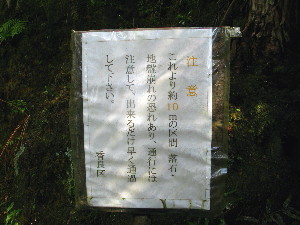 注意
これより約10mの区間、落石・
地盤崩れの恐れあり、通行には
注意して、出来るだけ早く通過
して下さい。
香良区